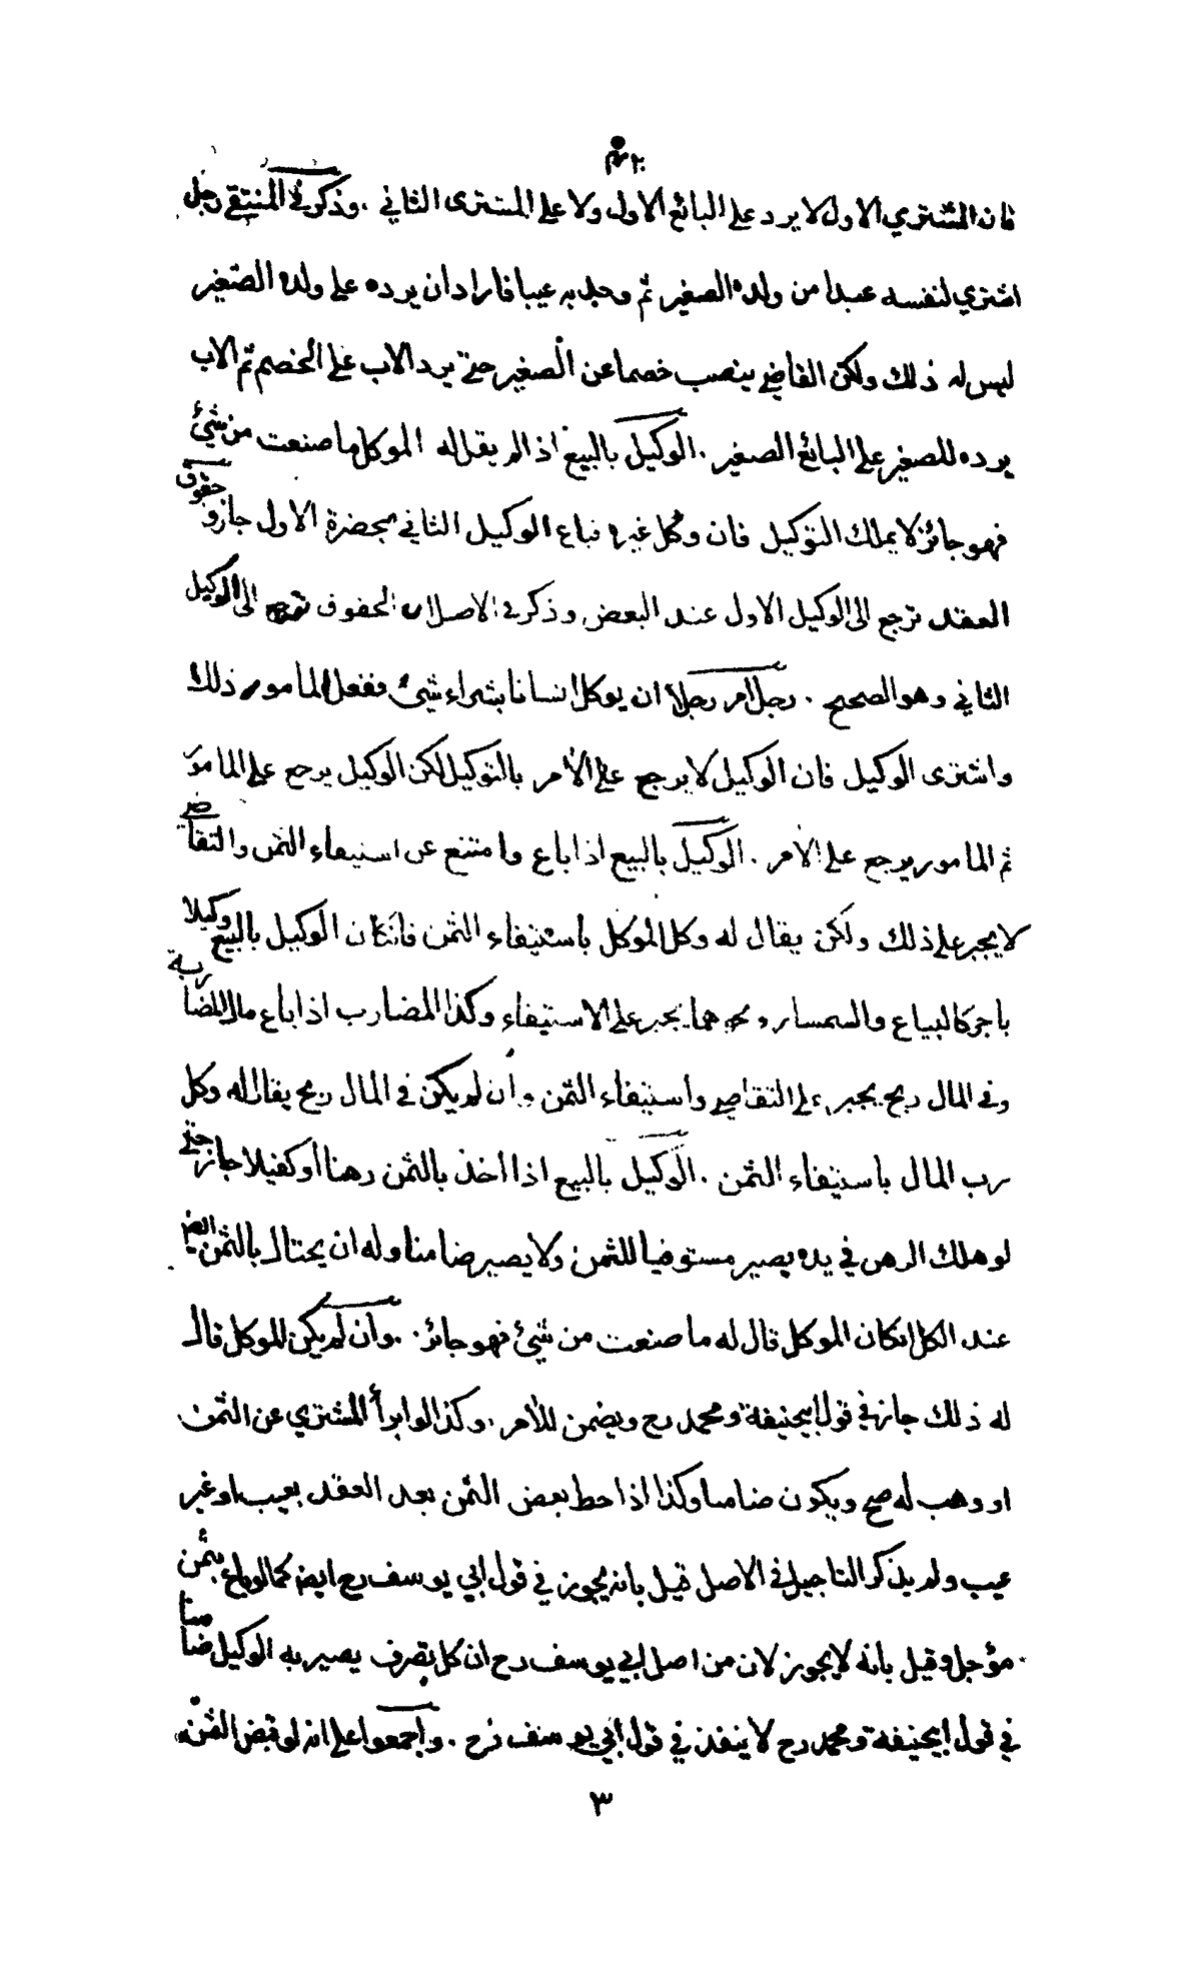 فان المشتري الاول لا يرد على البائع الاول ولا على المشترى الثاني . وذكر في المنتقى رجل
اشتري لنفسه عبدا من ولده الصغير ثم وجد به عيبا فاراد ان يرده على ولده الصغير
ليس له ذلك ولكن القاضي ينصب خصما عن الصغير حتى يرد الاب على الخصم ثم الاب
يرده للصغير على البائع الصغير . الوكيل بالبيع اذا لم يقل له الموكل ما صنعت من شيئ
فهو جائز لا يملك التوكيل فان وكل غيره فباع الوكيل الثاني بحضرة الاول جاز وحقوق
العقد ترجع الى الوكيل الاول عند البعض وذكر في الاصل ان الحقوق ترجع الى الوكيل
الثاني وهو الصحيح . رجل امر رجلا ان يوكل انسانا بشراء شيئ ففعل المامور ذلك
واشترى الوكيل فان الوكيل لا يرجع على الأمر بالتوكيل لكن الوكيل يرجع على المامور
ثم المامور يرجع على الأمر . الوكيل بالبيع اذا باع وامتنع عن استيفاء الثمن والتقاضي
لا يجبر على ذلك ولكن يقال له وكل الموكل باستيفاء الثمن فان كان الوكيل بالبيع وكيلا
باجر كالبياع والسمسار ونحوهما يجبر على الاستيفاء وكذا المضارب اذا باع مال المضاربة
وفى المال ربح يجبر على التقاضي واستيفاء الثمن وأن لم يكن في المال ربح يقال له وكل
رب المال باستيفاء الثمن . الوكيل بالبيع اذا اخذ بالثمن رهنا أو كفيلا جاز حتى
لو هلك الرهن في يده يصير مستوفيا للثمن ولا يصير ضامنا وله ان يحتال بالثمن ايضا
عند الكل ان كان الموكل قال له ما صنعت من شيئ فهو جائز . وان لم يكن للموكل قال
له ذلك جاز في قول ابيحنيفة ومحمد رح ويضمن للأمر . وكذا لو ابرأ المشتري عن الثمن
او وهب له صح ويكون ضامنا وكذا اذا حط بعض الثمن بعد العقد بعيب او غير
عيب ولم يذكر التاجيل في الاصل قيل بانه يجوز في قول ابي يوسف رح ايض كما لو باع بثمن
مؤجل وقيل بانه لا يجوز لان من اصل ابي يوسف رح ان كل تصرف يصير به الوكيل ضامنا
في قول ابيحنيفة ومحمد رح لا ينفذ في قول ابي يوسف رح . واجمعوا على انه لو قبض الثمن
٣